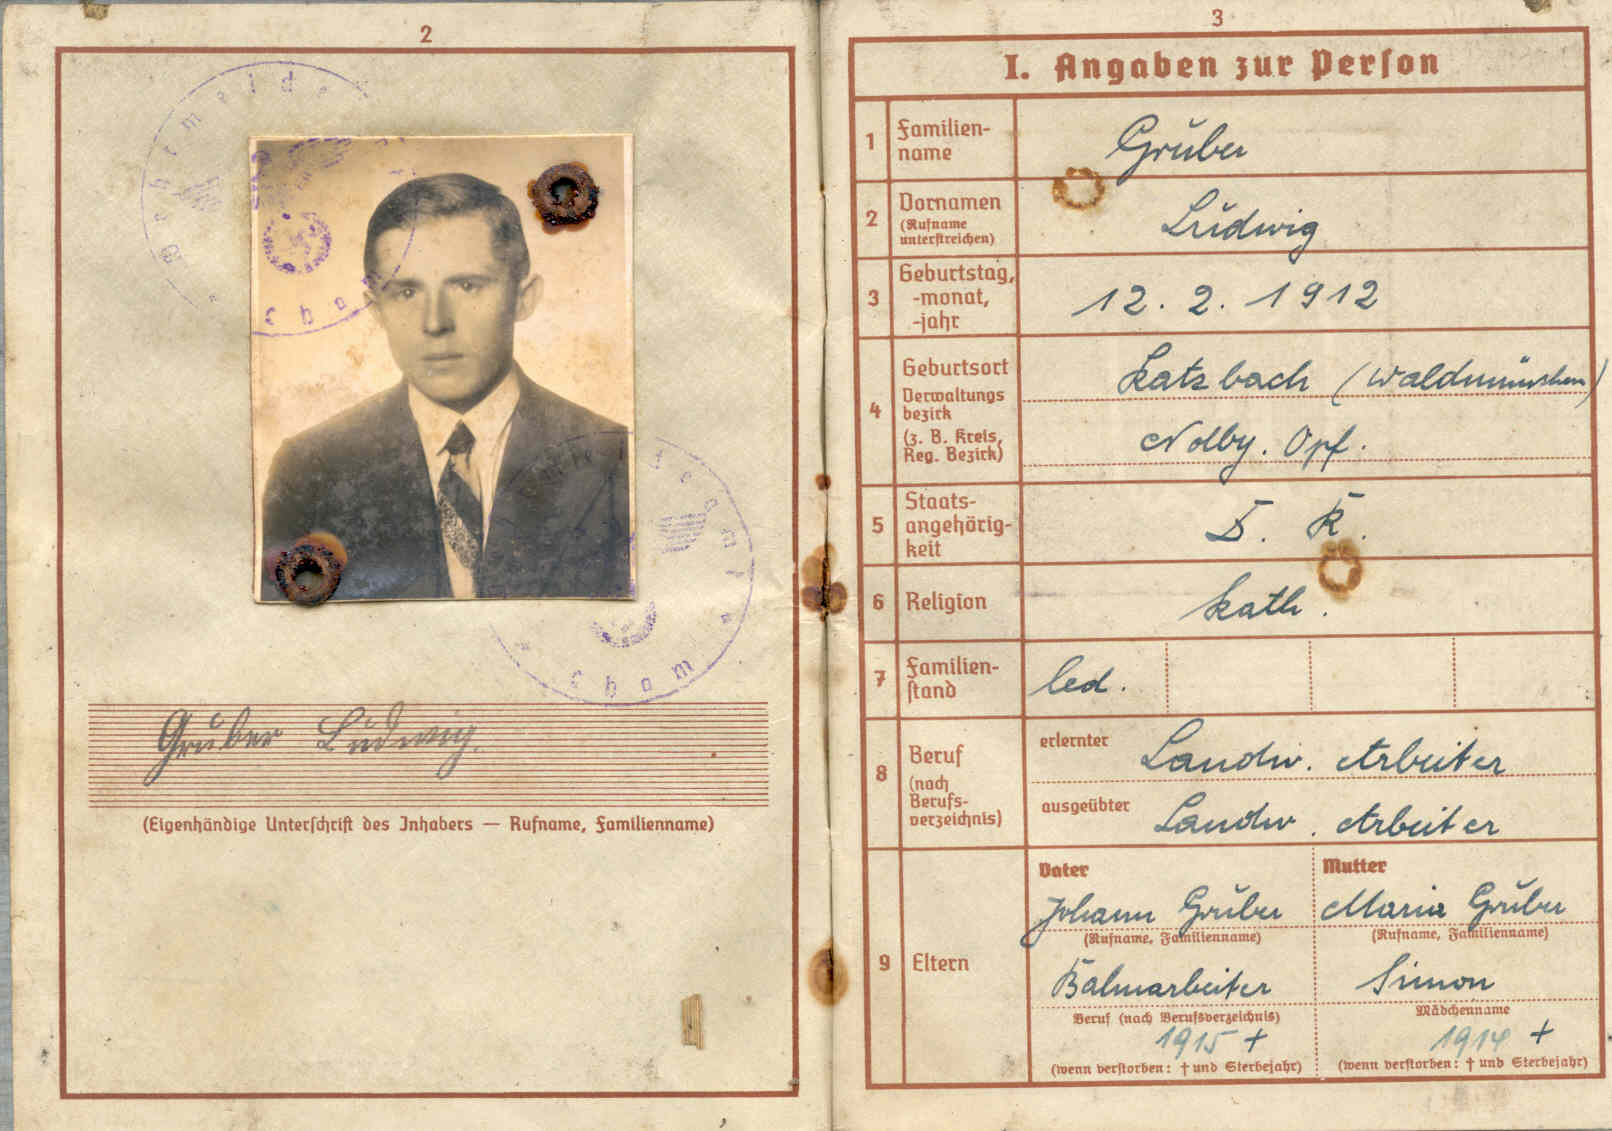 2
Wehrmeldeamt
Cham
Wehrmeldeamt
Cham
Gruber Ludwig.
(Eigenhändige Unterschrift des Inhabers — Rufname, Familienname)
3
I. Angaben zur Person
1 Familien-
name
Gruber
2 Vornamen
(Rufname
unterstreichen)
Ludwig
3 Geburtstag,
-monat,
-jahr
12. 2. 1912
4 Geburtsort
Verwaltungs
bezirk
(z. B. Kreis,
Reg. Bezirk)
Katzbach (Waldmünchen)
Ndby. Opf.
5 Staats-
angehörig-
keit
D. R.
6 Religion
kath.
7 Familien-
stand
led.
8 Beruf
(nach
Berufs-
verzeichnis)
erlernter Landw. Arbeiter
ausgeübter Landw. Arbeiter
9 Eltern
Vater
Johann Gruber
(Rufname, Familienname)
Bahnarbeiter
Beruf (nach Berufsverzeichnis)
1915 +
(wenn verstorben: † und Sterbejahr)
Mutter
Maria Gruber
(Rufname, Familienname)
Simon
Mädchenname
1914 +
(wenn verstorben: † und Sterbejahr)